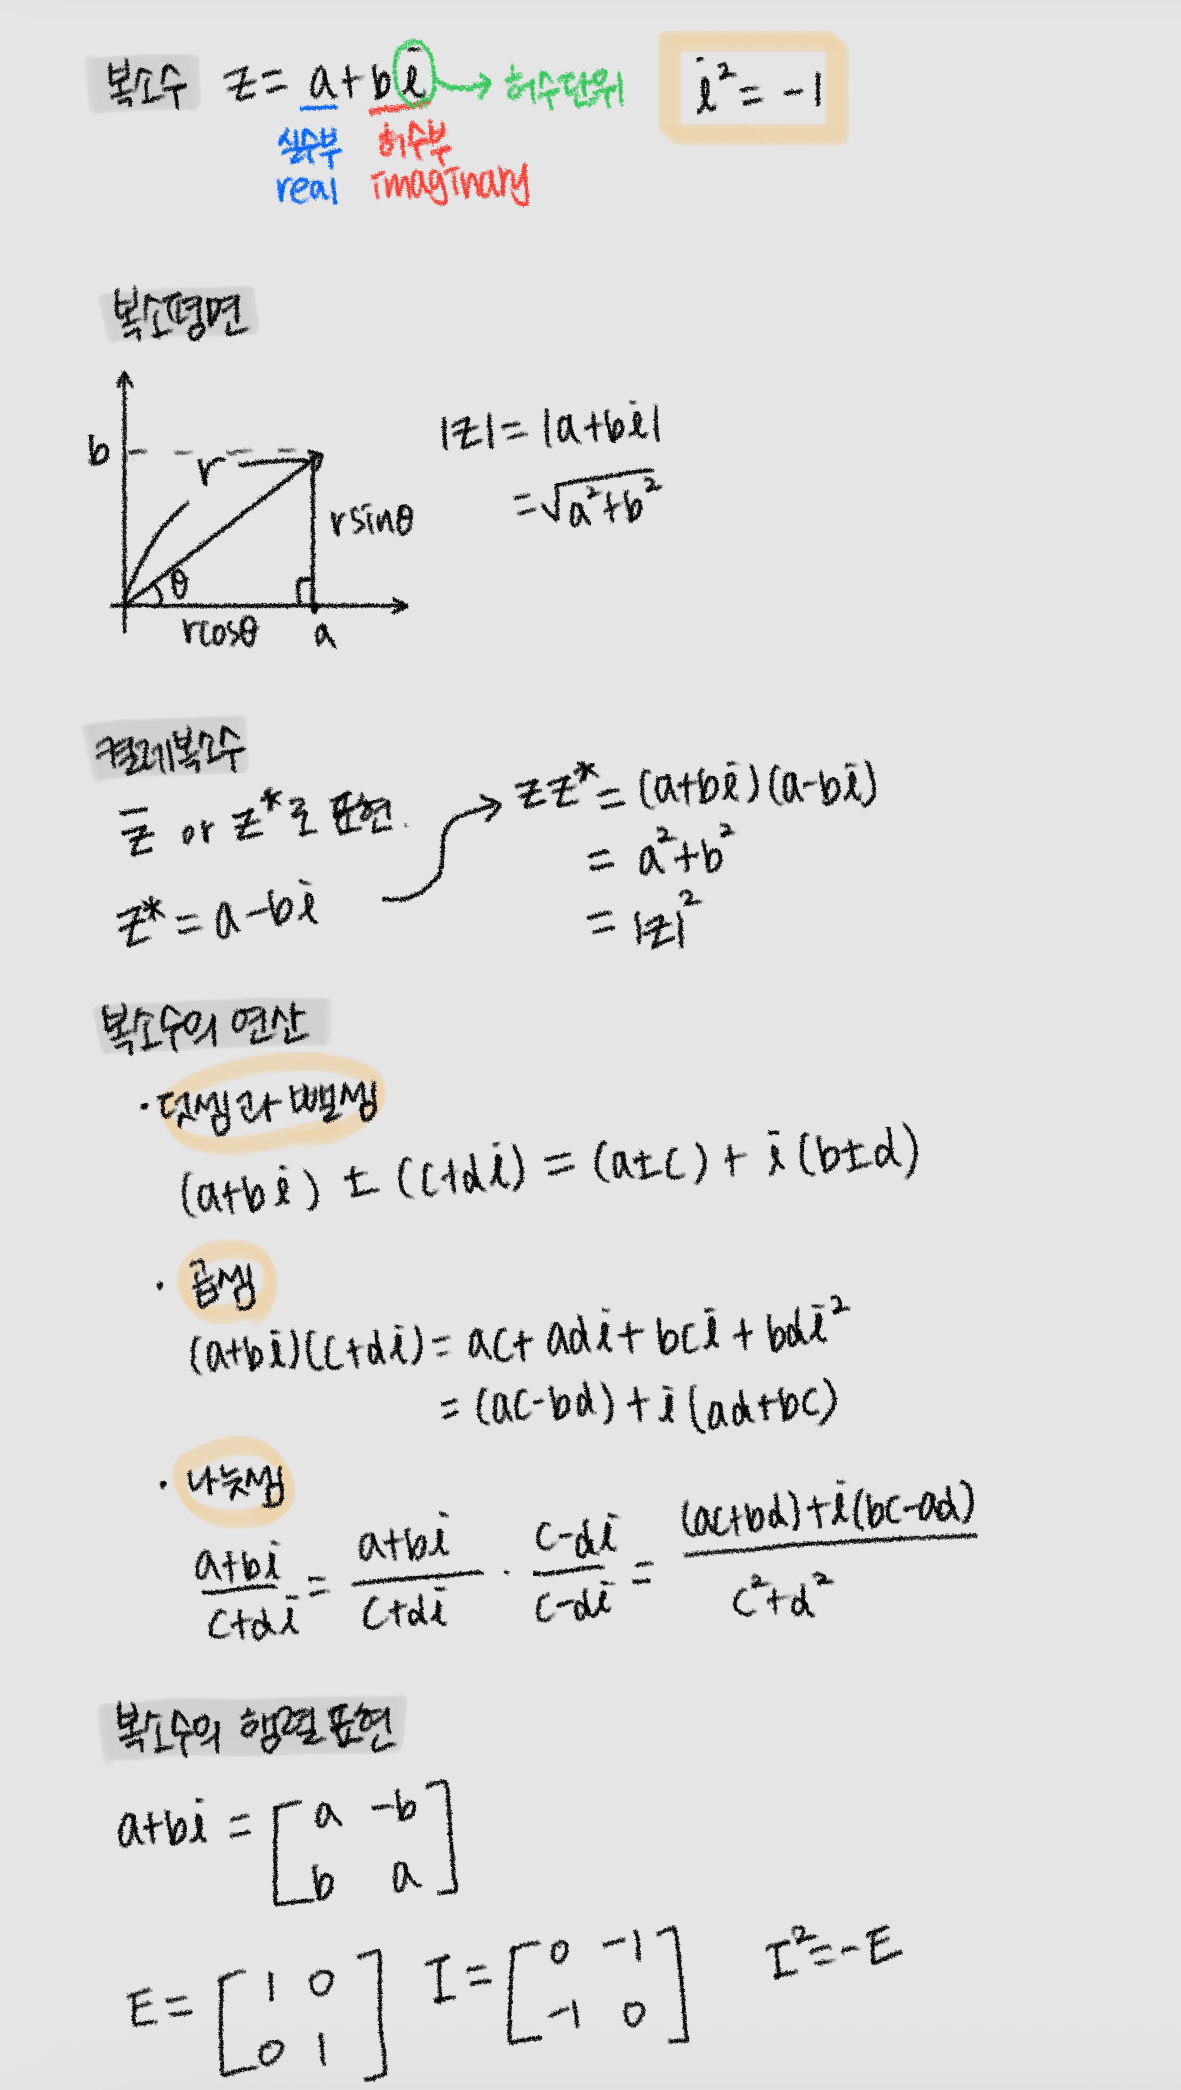 복소수 z = a + bi → 허수단위 i² = -1
실수부 허수부
real imaginary
복소평면
b r rsinθ θ rcosθ a
|z| = |a+bi|
= √(a²+b²)
켤레복소수
z̅ or z*로 표현.
z* = a-bi
zz* = (a+bi)(a-bi)
= a²+b²
= |z|²
복소수의 연산
· 덧셈과 뺄셈
(a+bi) ± (c+di) = (a±c) + i(b±d)
· 곱셈
(a+bi)(c+di) = ac + adi + bci + bdi²
= (ac-bd) + i(ad+bc)
· 나눗셈
(a+bi)/(c+di) = (a+bi)/(c+di) · (c-di)/(c-di) = ((ac+bd)+i(bc-ad))/(c²+d²)
복소수의 행렬표현
a+bi = [a -b
b a]
E = [1 0
0 1]
I = [0 -1
-1 0]
I² = -E